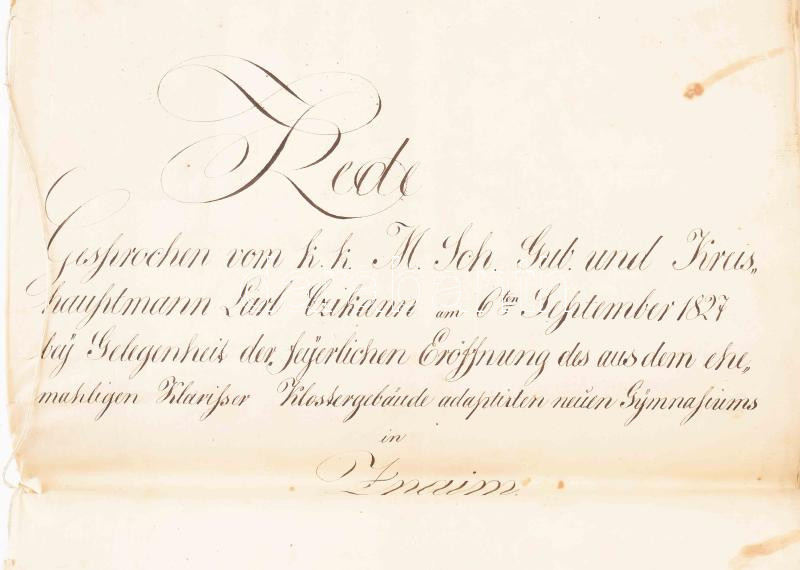 Rede
Gesprochen vom k. k. M. Sch. Gub. und Kreis„
hauptmann Carl Czikann am 6ten September 1827
bëy Gelegenheit der feÿerlichen Eröffnung des aus dem ehe„
mahligen Klarisser Klostergebäude adaptirten neuen Gÿmnasiums
in
Znaim.